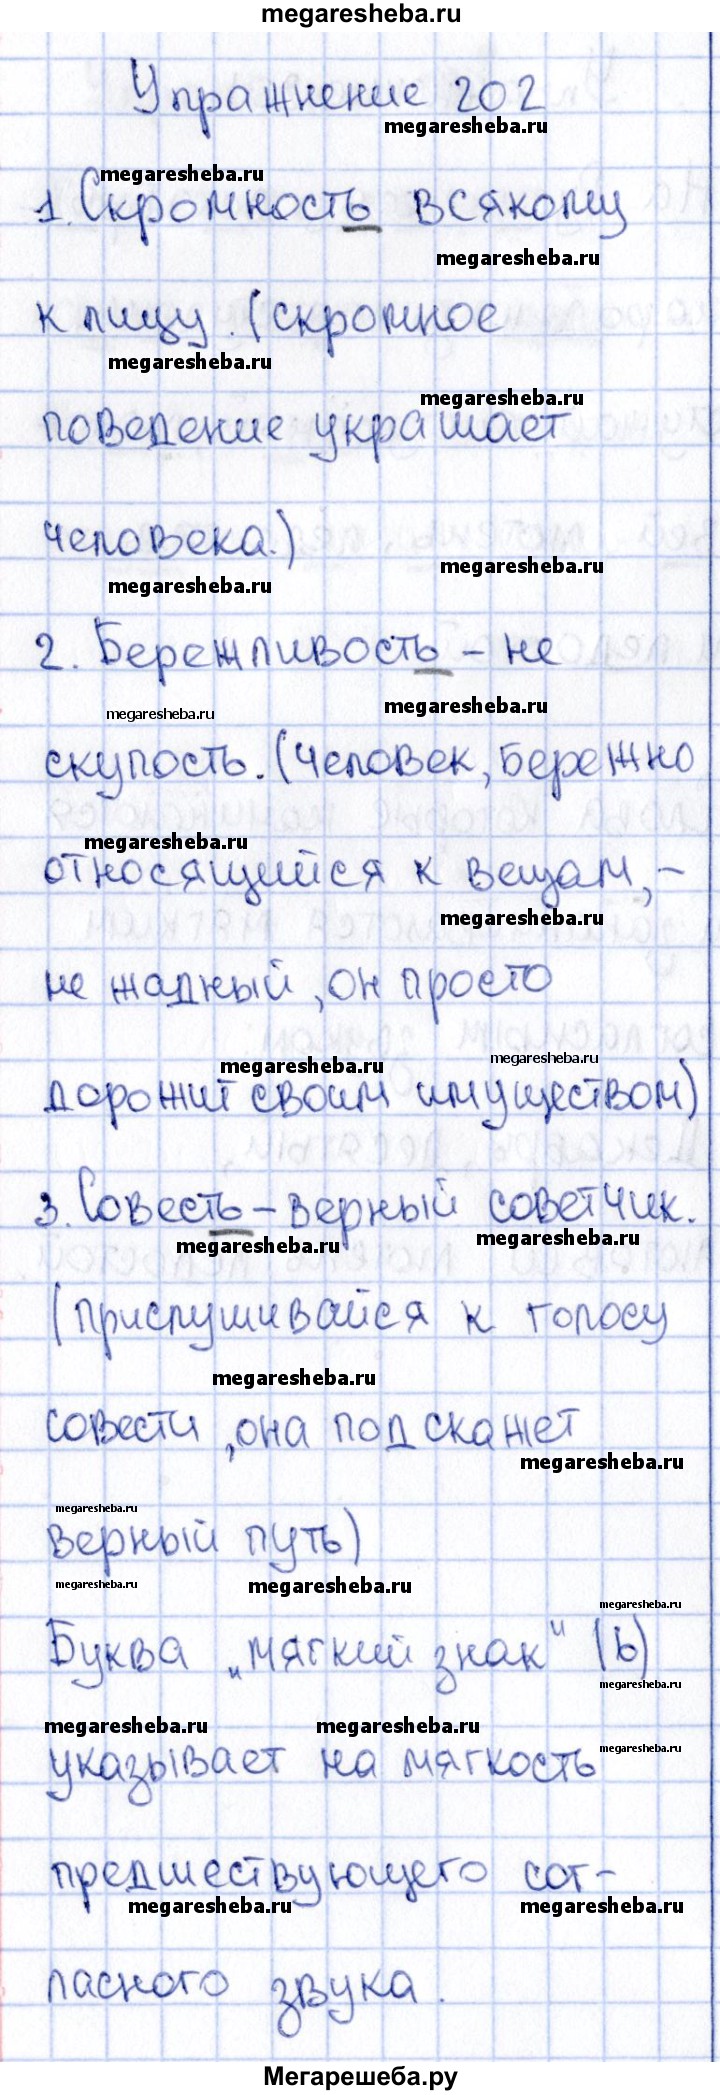 megaresheba.ru
Упражнение 202
megaresheba.ru
megaresheba.ru
1. Скромность всякому
megaresheba.ru
к лицу. (скромное
megaresheba.ru
megaresheba.ru
поведение украшает
человека.)
megaresheba.ru
megaresheba.ru
2. Бережливость - не
megaresheba.ru
megaresheba.ru
скупость. (Человек, бережно
megaresheba.ru
относящийся к вещам, -
megaresheba.ru
не жадный, он просто
megaresheba.ru
megaresheba.ru
дорожит своим имуществом)
3. Совесть - верный советчик.
megaresheba.ru
megaresheba.ru
(прислушивайся к голосу
megaresheba.ru
совести, она подскажет
megaresheba.ru
megaresheba.ru
верный путь)
megaresheba.ru
megaresheba.ru
megaresheba.ru
Буква „мягкий знак" (ь)
megaresheba.ru
megaresheba.ru
megaresheba.ru
megaresheba.ru
указывает на мягкость
предшествующего сог-
megaresheba.ru
megaresheba.ru
ласного звука.
Мегарешеба.ру